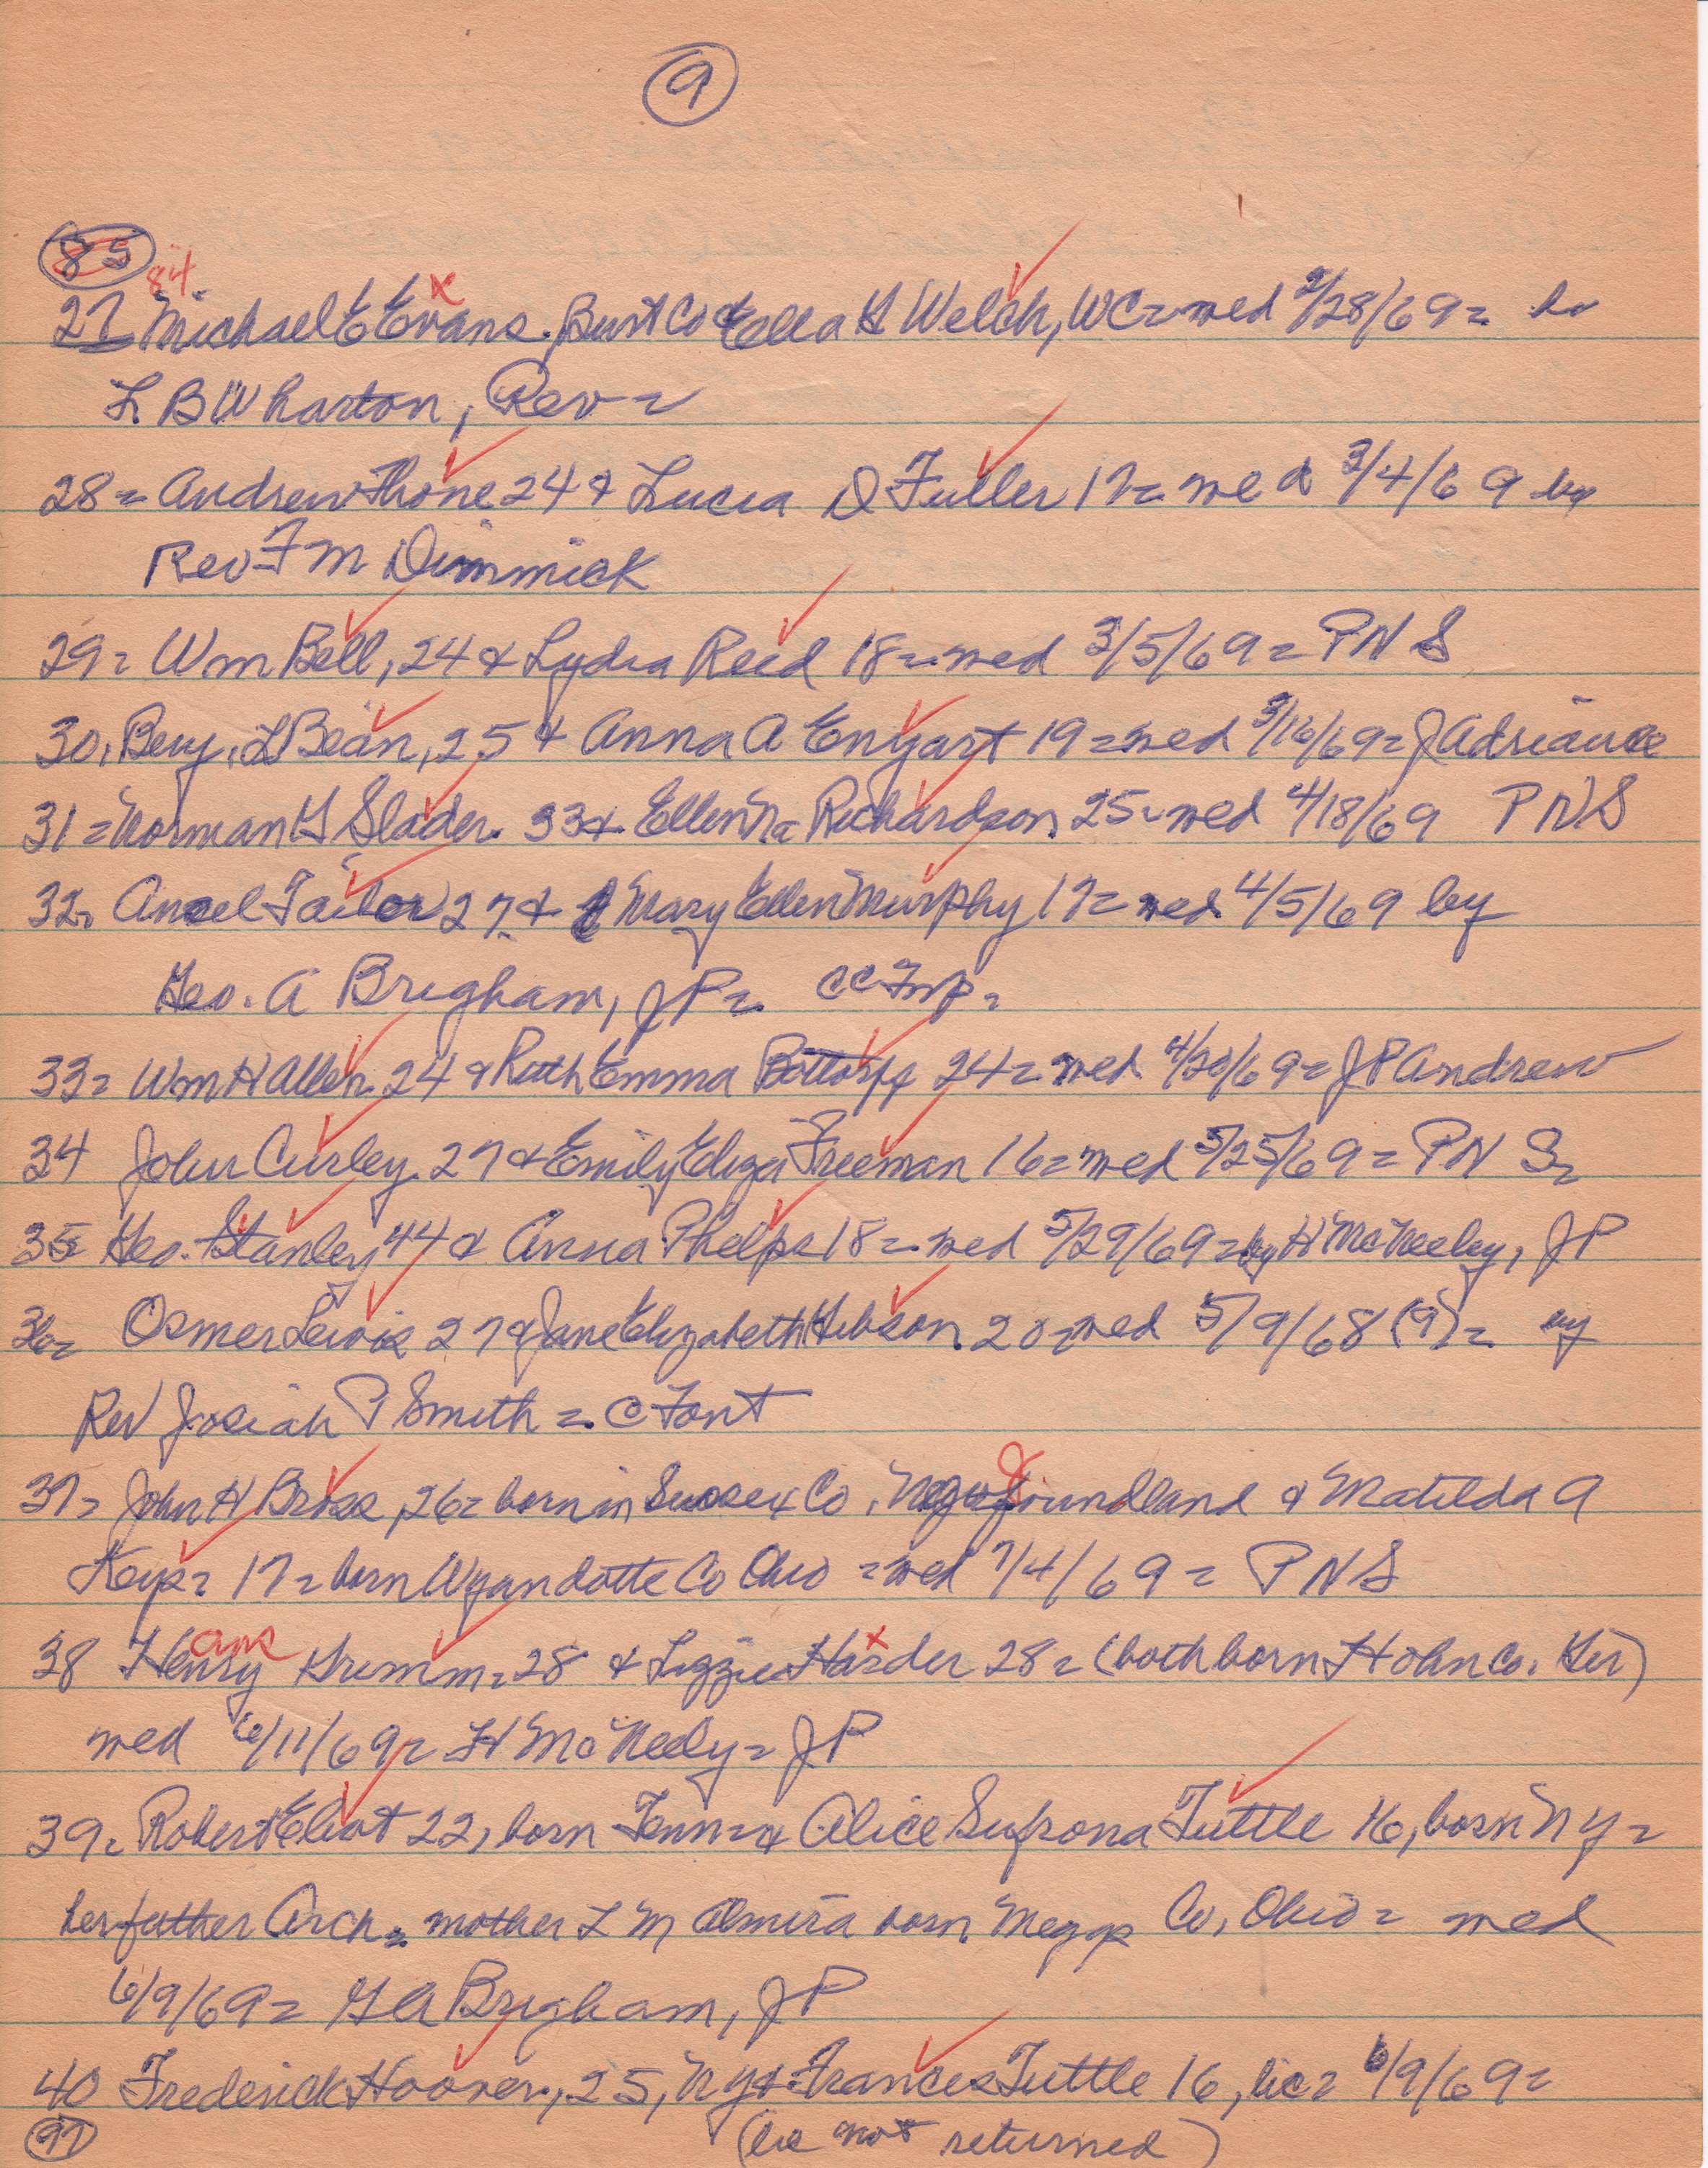 9
85 84
27 Michael E Evans. Burt Co & Ella H Welch, WC = med 2/28/69 =
L B Wharton, Rev =
28 = Andrew Thone 24 & Lucia D Fuller 17 = med 3/4/69 by
Rev F M Dimmick
29 = Wm Bell, 24 & Lydia Reed 18 = med 3/5/69 = P N S
30, Benj. L Bean, 25 & Anna A Enyart 19 = med 3/16/69 = J Adriance
31 = Norman G Slader. 33 & Ellen Richardson. 25 = med 4/18/69 P N S
32, Ancel Tailor 27 & Mary Ellen Murphy 17 = med 4/5/69 by
Geo. A Brigham, JP =
33 = Wm H Allen 24 & Ruth Emma Bottorff 24 = med 4/20/69 = J P Andrew
34 John Curley. 27 & Emily Eliza Freeman 16 = med 5/25/69 = P N S =
35 = Geo. Stanley 44 & Anna Phelps 18 = med 5/29/69 = by H McNeeley, JP
36 = Osmer Lewis 27 & Jane Elizabeth Gibson 20 = med 5/9/68 (9) = by
Rev Josiah P Smith = C Font
37 = John H Bross, 26 = born in Sussex Co, Newfoundland & Matilda A
Keys = 17 = born Wyandotte Co Ohio = med 7/4/69 = P N S
ans
38 Henry Grimm = 28 & Lizzie Harder 28 = (both born Hohn Co. Ger)
med 6/11/69 = H McNeely = JP
39 = Robert Eliot 22, born Tenn = & Alice Sufrona Tuttle 16, born N Y =
her father Arch = mother L M Almira born Co, Ohio = med
6/9/69 = G A Brigham, JP
40 Frederick Hoover, 25, NY & Frances Tuttle 16, lic = 6/9/69 =
97 (lic not returned)